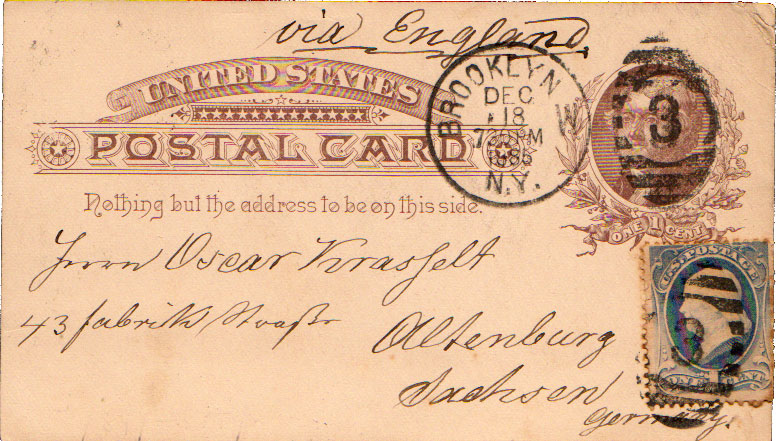 via England
UNITED STATES
POSTAL CARD
BROOKLYN
DEC
18
1886
N.Y.
3
Nothing but the address to be on this side.
ONE 1 CENT
U.S. POSTAGE
3
Herrn Oscar Krasselt
43 Fabrik Strasse
Altenburg
Sachsen
Germany.